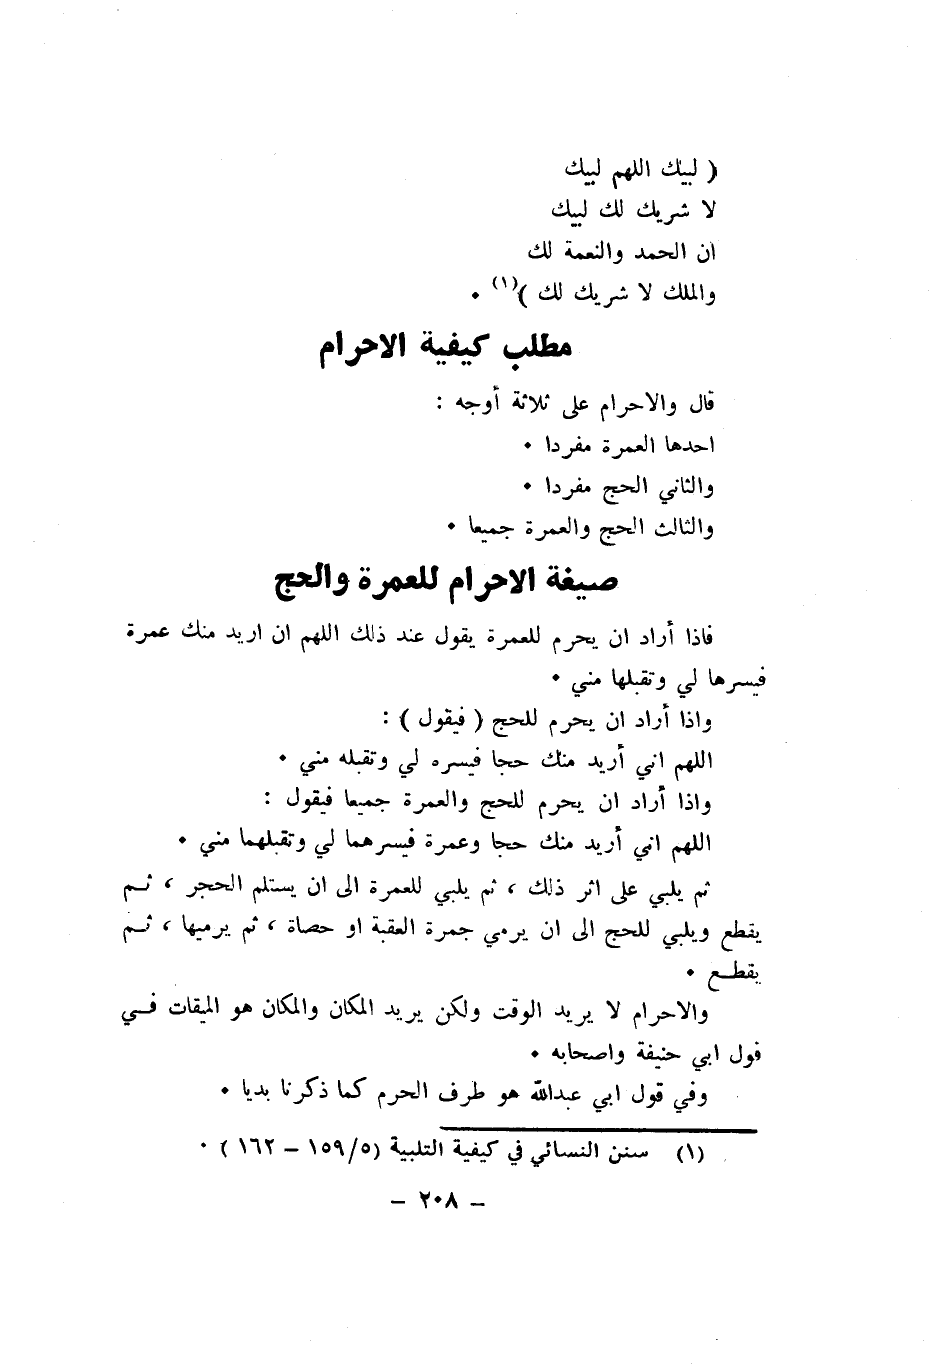 ( لبيك اللهم لبيك
لا شريك لك لبيك
ان الحمد والنعمة لك
والملك لا شريك لك )(١) ٠
مطلب كيفية الاحرام
قال والاحرام على ثلاثة أوجه :
احدها العمرة مفردا ٠
والثاني الحج مفردا ٠
والثالث الحج والعمرة جميعا ٠
صيغة الاحرام للعمرة والحج
فاذا أراد ان يحرم للعمرة يقول عند ذلك اللهم ان اريد منك عمرة
فيسرها لي وتقبلها مني ٠
واذا أراد ان يحرم للحج ( فيقول ) :
اللهم اني أريد منك حجا فيسره لي وتقبله مني ٠
واذا أراد ان يحرم للحج والعمرة جميعا فيقول :
اللهم اني أريد منك حجا وعمرة فيسرهما لي وتقبلهما مني ٠
ثم يلبي على اثر ذلك ، ثم يلبي للعمرة الى ان يستلم الحجر ، ثـم
يقطع ويلبي للحج الى ان يرمي جمرة العقبة او حصاة ، ثم يرميها ، ثـم
يقطـع ٠
والاحرام لا يريد الوقت ولكن يريد المكان والمكان هو الميقات فـي
قول ابي حنيفة واصحابه ٠
وفي قول ابي عبدالله هو طرف الحرم كما ذكرنا بديا ٠
(١) سنن النسائي في كيفية التلبية (١٥٩/٥ – ١٦٢ ) ٠
– ٢٠٨ –